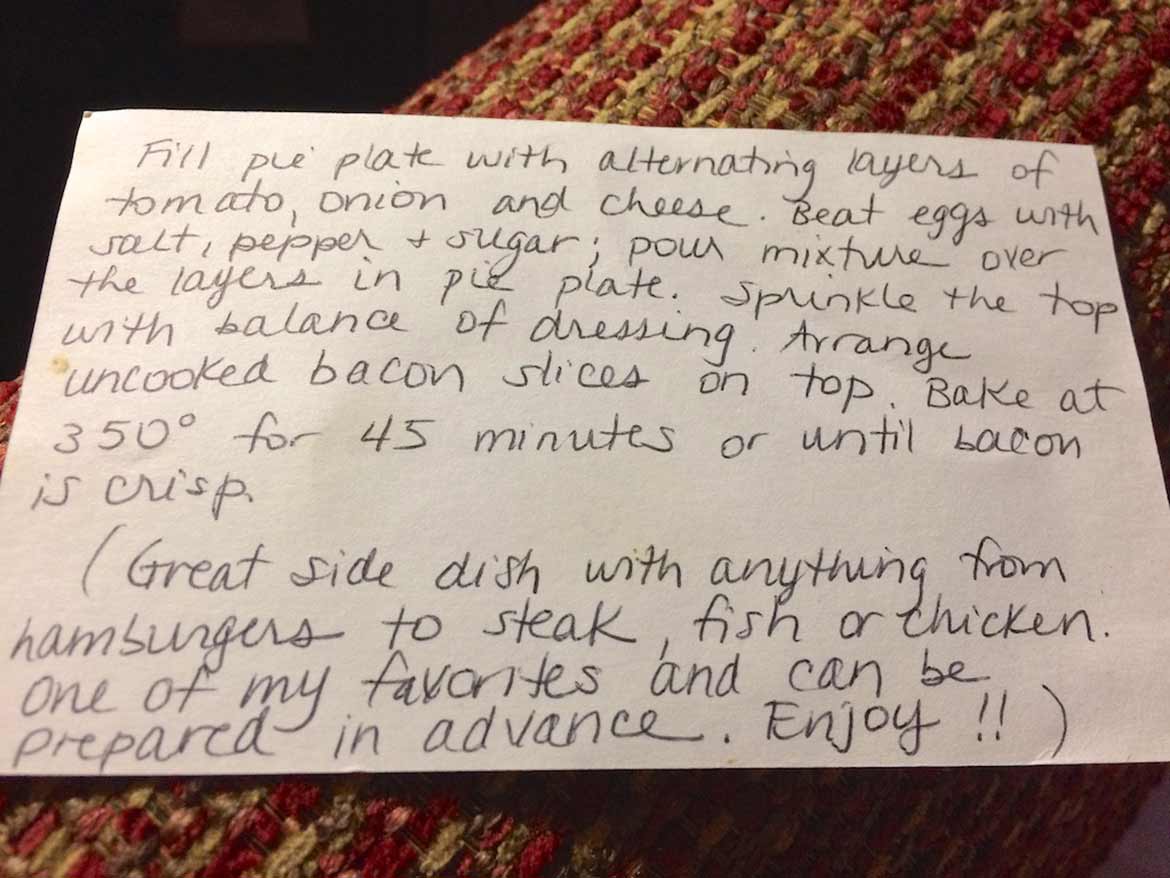 Fill pie plate with alternating layers of
tomato, onion and cheese. Beat eggs with
salt, pepper + sugar; pour mixture over
the layers in pie plate. Sprinkle the top
with balance of dressing. Arrange
uncooked bacon slices on top. Bake at
350° for 45 minutes or until bacon
is crisp.
(Great side dish with anything from
hamburgers to steak, fish or chicken.
One of my favorites and can be
prepared in advance. Enjoy!!)